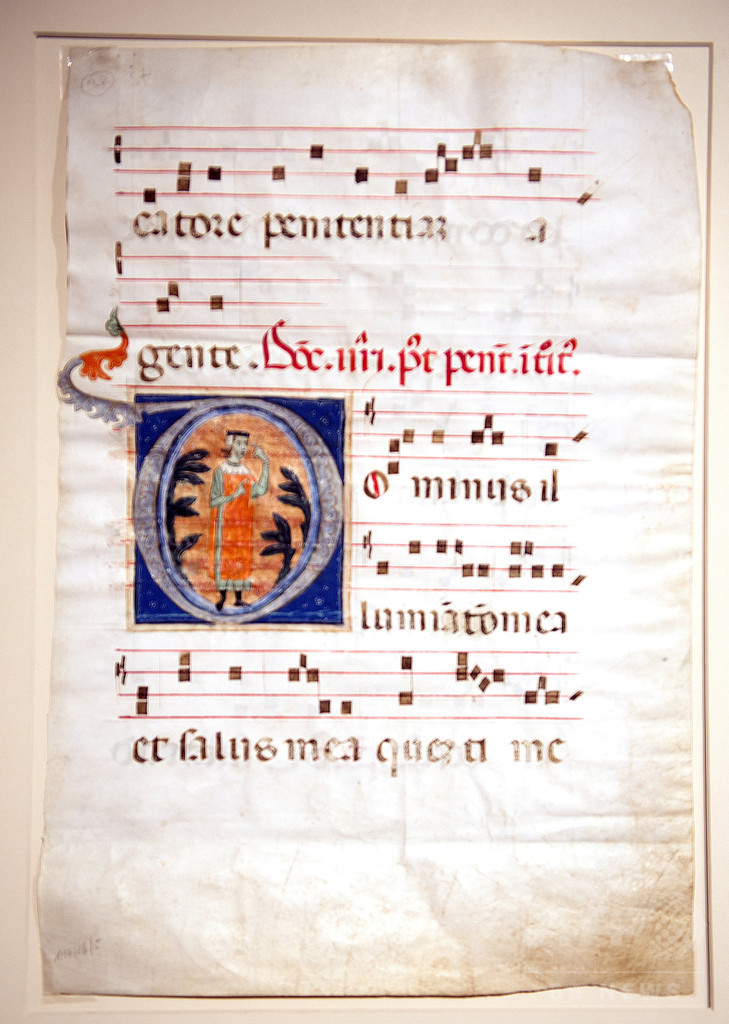 catore penitentiar a
gente. Dōc. iiii. p̄t pent. ītit.
ominus il
lumiātō mea
et salus mea quez ti me